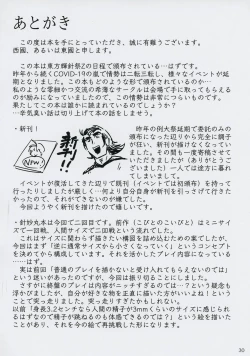 あとがき
この度は本を手にとっていただき、誠に有難うございます。
西園、あるいは東園と申します。
この本は東方輝針祭2の日程で頒布されている…はずです。
昨年から続くCOVID-19の嵐で情勢は二転三転し、様々なイベントが延期
となりました。この本もどのような形で頒布されるのか…
私のような零細かつ交流の希薄なサークルは会場で手に取ってもらえる
のが頒布の殆どになっていますので、この情勢は非常につらいものです。
果たしてこの本は誰かに読まれているのでしょうか？
～辛気臭い話は切り上げて本の話をしましょう。
・新刊！
NEW
昨年の例大祭延期で委託のみの
頒布になった辺りから完全に調子
が狂い、新刊が描けなくなってい
ました。その間も一度寄稿させて
いただきましたが（ありがとうご
ざいました）一人では途方に暮れ
てしまっていました。
イベントが復活してきた辺りで既刊（イベントでは初頒布）を持って
行ったりしましたが厳しく…何より自分自身が新刊を引っさげて行きた
かったので、それができないのが嫌でした。
今回ようやく新刊を描けたので嬉しいです。
・針妙丸本は今回で二回目です。前作（こびとのこいびと）はミニサイ
ズで一回戦、人間サイズで二回戦という流れでした。
これはサイズに関わらず描きたい構図を詰め込むための案でしたが、
今回はまず「逆に通常サイズから小さくなっていく」というコンセプト
を決めてから構成しています。それを活かしたプレイ内容になっている
…はず。
実は前回「普通のプレイを描かないと受け入れてもらえないのでは」
という迷いがあったのですが、今回は振り切ることにしました。
さすがに終盤のプレイは内容がニッチすぎるのでは…？という疑念も
浮かびましたが、自分が好きな物を正直に描いた方がいいよね！という
ことで突っ走りました。突っ走りすぎたかもしれない。
以前「身長3.2センチなら人間の精子が3mmくらいのサイズに感じられ
るはずなので精子が跳ねるのを体感できるのでは？」という絵を描いた
ことがあり、それを今の絵で再挑戦した形になります。
30